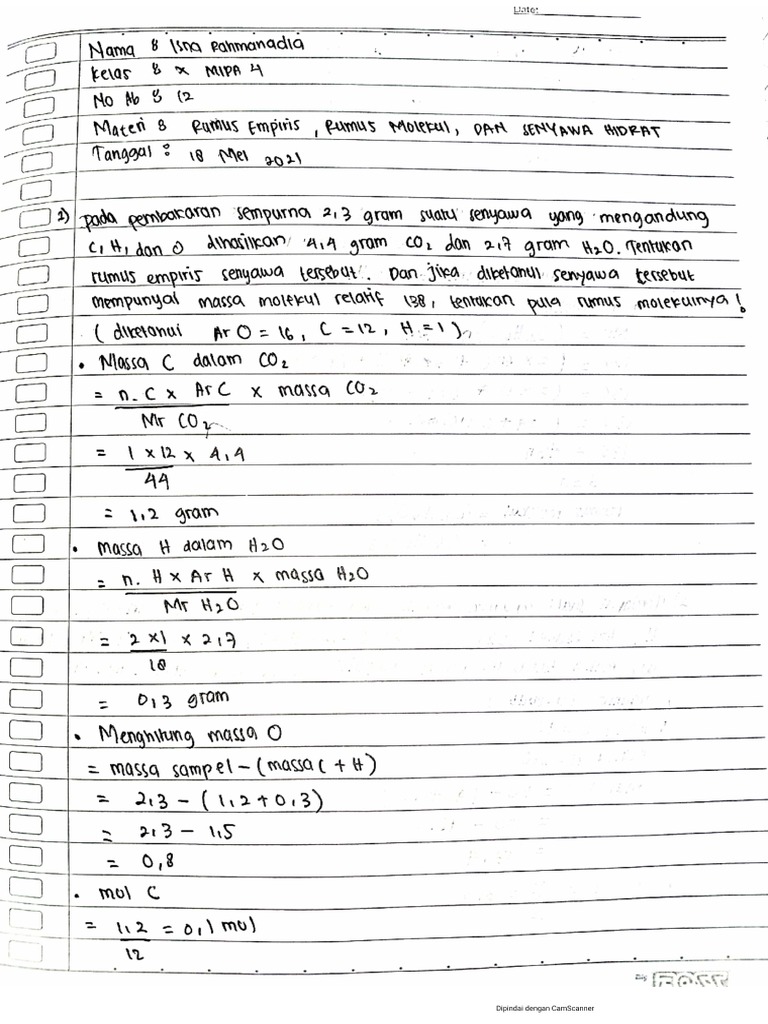 Date:
Nama : Isna Rahmanadia
Kelas : X MIPA 4
No Ab : 12
Materi : Rumus Empiris, Rumus Molekul, DAN SENYAWA HIDRAT
Tanggal : 18 Mei 2021
1) Pada pembakaran sempurna 2,3 gram suatu senyawa yang mengandung
C, H, dan O dihasilkan 4,4 gram CO₂ dan 2,7 gram H₂O. Tentukan
rumus empiris senyawa tersebut. Dan jika diketahui senyawa tersebut
mempunyai massa molekul relatif 138, tentukan pula rumus molekulnya!
( diketahui Ar O = 16, C = 12, H = 1 )
• Massa C dalam CO₂
= n. C x Ar C x massa CO₂
Mr CO₂
= 1 x 12 x 4,4
44
= 1,2 gram
• Massa H dalam H₂O
= n. H x Ar H x massa H₂O
Mr H₂O
= 2 x 1 x 2,7
18
= 0,3 gram
• Menghitung massa O
= massa sampel - (massa C + H)
= 2,3 - (1,2 + 0,3)
= 2,3 - 1,5
= 0,8
• mol C
= 1,2 = 0,1 mol
12
Dipindai dengan CamScanner